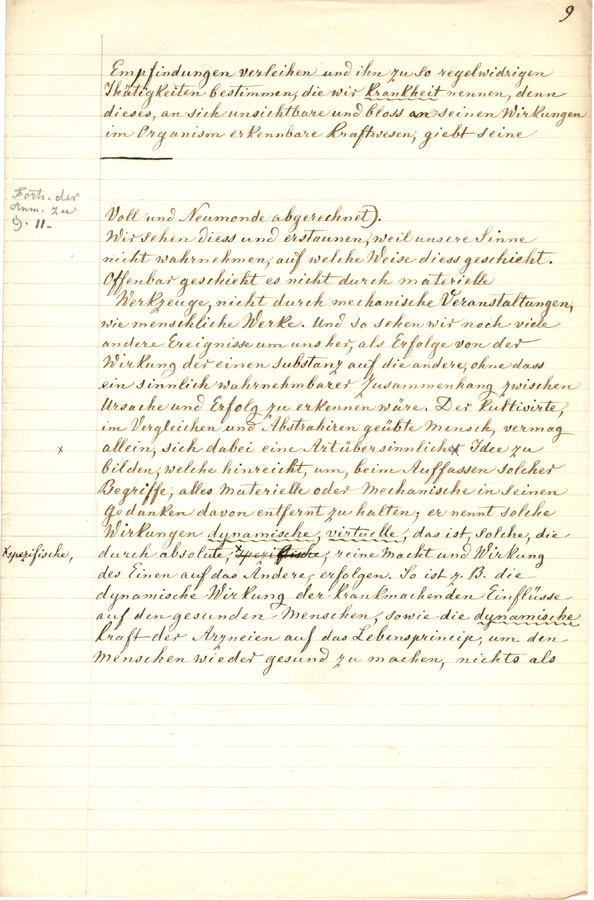 9
Empfindungen verleihen und ihn zu so regelwidrigen
Thätigkeiten bestimmen, die wir Krankheit nennen, denn
dieses, an sich unsichtbare und bloss an seinen Wirkungen
im Organism erkennbare Kraftwesen, giebt seine
Forts. der
Anm. zu
§. 11-
Voll und Neumonde abgerechnet).
Wir sehen diess und erstaunen, weil unsere Sinne
nicht wahrnehmen, auf welche Weise diess geschieht.
Offenbar geschieht es nicht durch materielle
Werkzeuge, nicht durch mechanische Veranstaltungen,
wie menschliche Werke. Und so sehen wir noch viele
andere Ereignisse um uns her, als Erfolge von der
Wirkung der einen substanz auf die andere, ohne dass
ein sinnlich wahrnehmbarer Zusammenhang zwischen
Ursache und Erfolg zu erkennen wäre. Der kultivirte,
im Vergleichen und Abstrahiren geübte Mensch, vermag
x allein, sich dabei eine Art übersinnlicher Idee zu
bilden, welche hinreicht, um, beim Auffassen solcher
Begriffe, alles Materielle oder Mechanische in seinen
Gedanken davon entfernt zu halten; er nennt solche
Wirkungen dynamische, virtuelle, das ist, solche, die
x spezifische, durch absolute, x spezifische, reine Macht und Wirkung
des Einen auf das Andere, erfolgen. So ist z. B. die
dynamische Wirkung der krankmachenden Einflüsse
auf den gesunden Menschen, sowie die dynamische
Kraft der Arzneien auf das Lebensprincip, um den
Menschen wieder gesund zu machen, nichts als